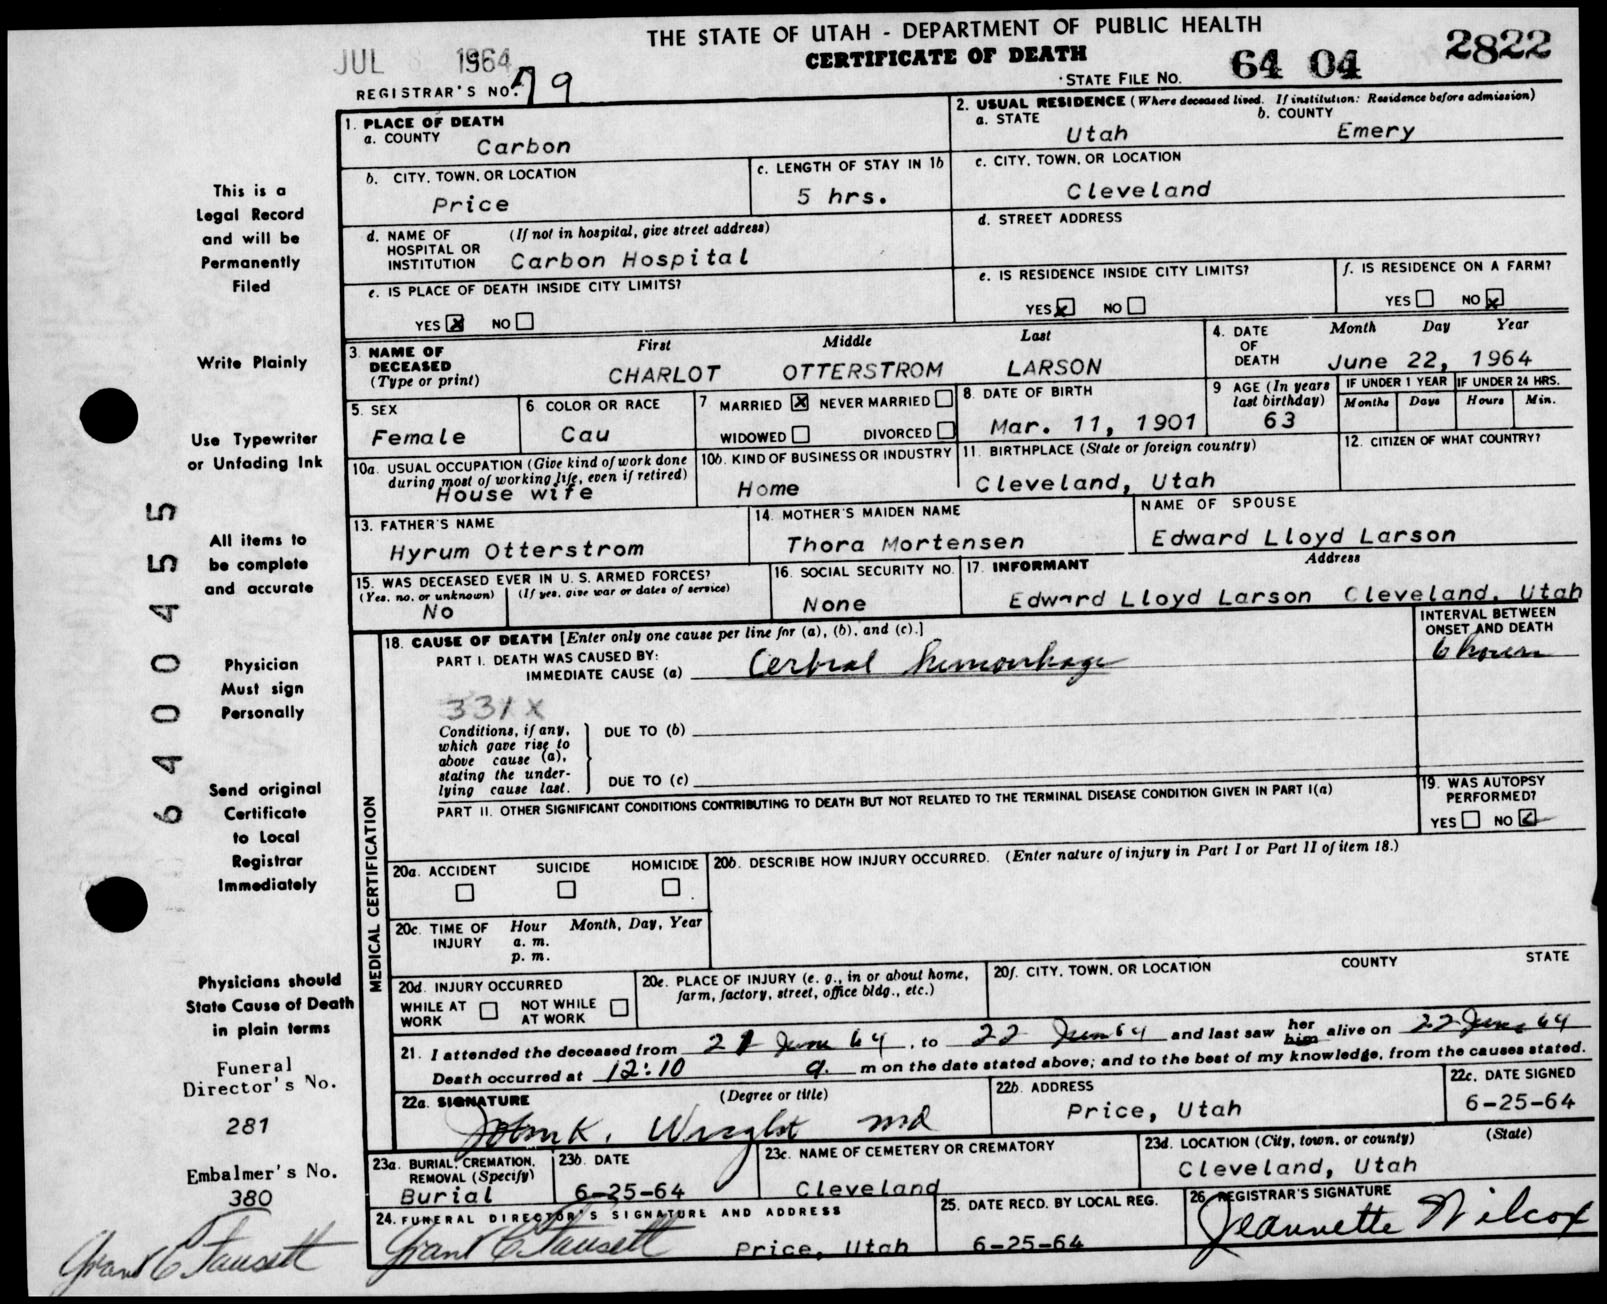 THE STATE OF UTAH - DEPARTMENT OF PUBLIC HEALTH
CERTIFICATE OF DEATH
JUL 1964
REGISTRAR'S NO. 79
STATE FILE NO. 64 04 2822
This is a
Legal Record
and will be
Permanently
Filed
Write Plainly
Use Typewriter
or Unfading Ink
All items to
be complete
and accurate
Physician
Must sign
Personally
Send original
Certificate
to Local
Registrar
Immediately
Physicians should
State Cause of Death
in plain terms
Funeral
Director's No.
281
Embalmer's No.
380
Grant C Fausett
640 0455
1. PLACE OF DEATH
a. COUNTY Carbon
2. USUAL RESIDENCE (Where deceased lived. If institution: Residence before admission)
a. STATE Utah b. COUNTY Emery
b. CITY, TOWN, OR LOCATION Price
c. LENGTH OF STAY IN 1b 5 hrs.
c. CITY, TOWN, OR LOCATION Cleveland
d. NAME OF HOSPITAL OR INSTITUTION (If not in hospital, give street address) Carbon Hospital
d. STREET ADDRESS
e. IS PLACE OF DEATH INSIDE CITY LIMITS?
YES X NO
e. IS RESIDENCE INSIDE CITY LIMITS?
YES X NO
f. IS RESIDENCE ON A FARM?
YES NO X
3. NAME OF DECEASED (Type or print)
First Middle Last
CHARLOT OTTERSTROM LARSON
4. DATE OF DEATH Month Day Year
June 22, 1964
5. SEX Female
6. COLOR OR RACE Cau
7 MARRIED X NEVER MARRIED
WIDOWED DIVORCED
8. DATE OF BIRTH Mar. 11, 1901
9 AGE (In years last birthday) 63
IF UNDER 1 YEAR Months Days
IF UNDER 24 HRS. Hours Min.
10a. USUAL OCCUPATION (Give kind of work done during most of working life, even if retired)
House wife
10b. KIND OF BUSINESS OR INDUSTRY
Home
11. BIRTHPLACE (State or foreign country)
Cleveland, Utah
12. CITIZEN OF WHAT COUNTRY?
13. FATHER'S NAME
Hyrum Otterstrom
14. MOTHER'S MAIDEN NAME
Thora Mortensen
NAME OF SPOUSE
Edward Lloyd Larson
15. WAS DECEASED EVER IN U. S. ARMED FORCES?
(Yes, no, or unknown) (If yes, give war or dates of service)
No
16. SOCIAL SECURITY NO.
None
17. INFORMANT Address
Edward Lloyd Larson Cleveland, Utah
18. CAUSE OF DEATH [Enter only one cause per line for (a), (b), and (c).]
INTERVAL BETWEEN ONSET AND DEATH
PART I. DEATH WAS CAUSED BY:
IMMEDIATE CAUSE (a) Cerbral hemorrhage 6 hours
331X
Conditions, if any, which gave rise to above cause (a), stating the underlying cause last.
DUE TO (b)
DUE TO (c)
PART II. OTHER SIGNIFICANT CONDITIONS CONTRIBUTING TO DEATH BUT NOT RELATED TO THE TERMINAL DISEASE CONDITION GIVEN IN PART I(a)
19. WAS AUTOPSY PERFORMED?
YES NO
MEDICAL CERTIFICATION
20a. ACCIDENT SUICIDE HOMICIDE
20b. DESCRIBE HOW INJURY OCCURRED. (Enter nature of injury in Part I or Part II of item 18.)
20c. TIME OF INJURY Hour Month, Day, Year
a. m.
p. m.
20d. INJURY OCCURRED
WHILE AT WORK NOT WHILE AT WORK
20e. PLACE OF INJURY (e. g., in or about home, farm, factory, street, office bldg., etc.)
20f. CITY, TOWN, OR LOCATION COUNTY STATE
21. I attended the deceased from 21 June 64, to 22 June 64 and last saw her him alive on 22 June 64
Death occurred at 12:10 a. m on the date stated above; and to the best of my knowledge, from the causes stated.
22a. SIGNATURE (Degree or title)
John K. Wright MD
22b. ADDRESS
Price, Utah
22c. DATE SIGNED
6-25-64
23a. BURIAL, CREMATION, REMOVAL (Specify)
Burial
23b. DATE
6-25-64
23c. NAME OF CEMETERY OR CREMATORY
Cleveland
23d. LOCATION (City, town, or county) (State)
Cleveland, Utah
24. FUNERAL DIRECTOR'S SIGNATURE AND ADDRESS
Grant C Fausett Price, Utah
25. DATE RECD. BY LOCAL REG.
6-25-64
26 REGISTRAR'S SIGNATURE
Jeannette Wilcox